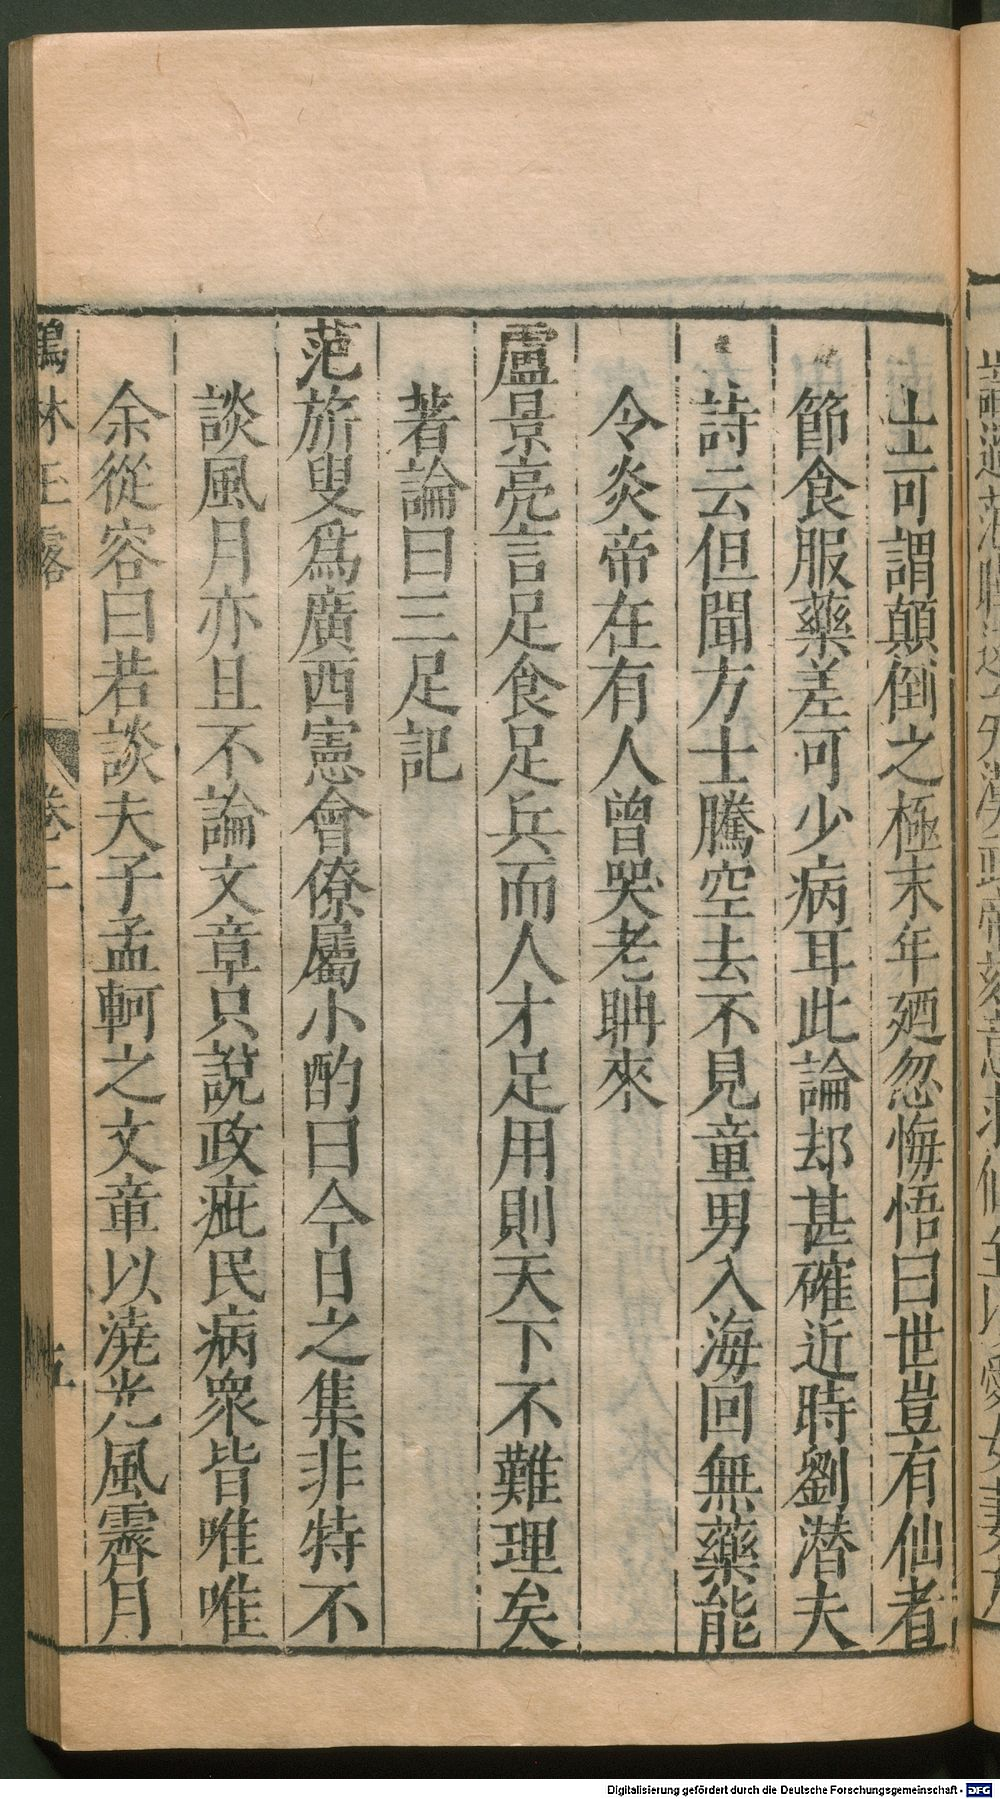 士可謂顛倒之極末年廼忽悔悟曰世豈有仙者
節食服藥差可少病耳此論却甚確近時劉潛夫
詩云但聞方士騰空去不見童男入海回無藥能
令炎帝在有人曾哭老聃來
盧景亮言足食足兵而人才足用則天下不難理矣
著論曰三足記
范旂叟爲廣西憲會僚屬小酌曰今日之集非特不
談風月亦且不論文章只說政疵民病衆皆唯唯
余從容曰若談夫子孟軻之文章以澆光風霽月
鶴林玉露 卷二 五
Digitalisierung gefördert durch die Deutsche Forschungsgemeinschaft - DFG